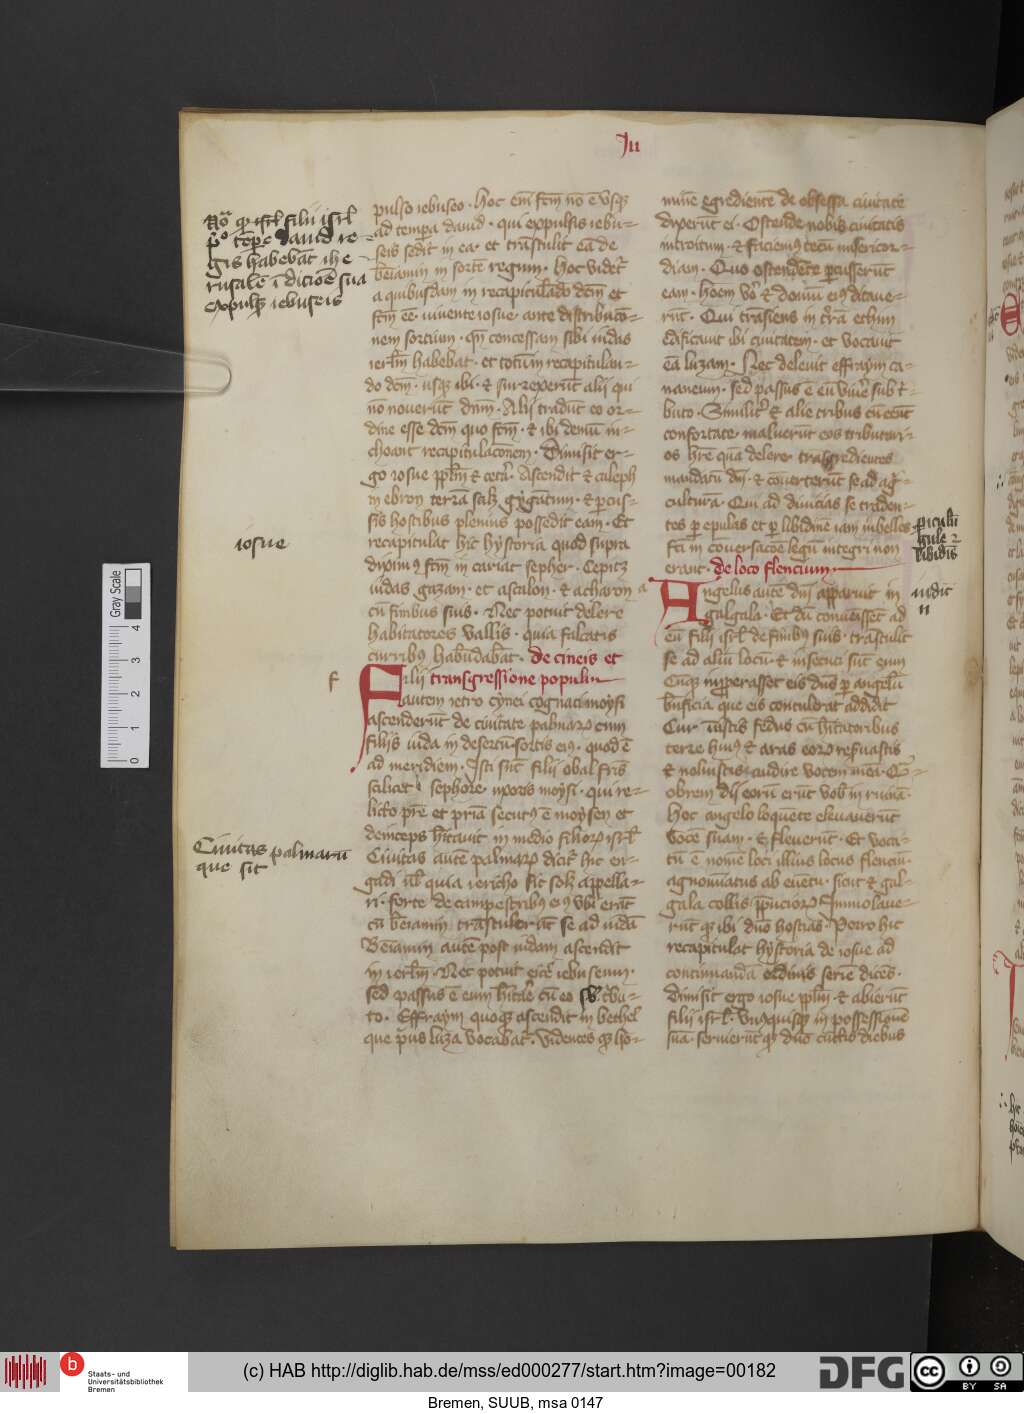 Iu
No qr isrl filii isrl
po tēpe dauid re-
gis habebāt ihe-
rusalē ī dicioē sua
expulsis iebuseis
pulso iebuseo. Hoc em̄ fcm̄ nō ē usqꝫ
ad tempora dauid. qui expulsis iebu=
seis sedit in ea. et trāstulit eā de
beniamin in sortē regum. Hoc videtr
a quibusdam in recapitulādo dcm̄ et
fcm̄ eē. iuuente iosue. ante distribucō=
nem sortium. qn̄ concessam sibi iudas
ierlm̄ habebat. et totum recapitulan=
do dcm̄. usqꝫ ibi. et surrexerūt alij qui
nō nouerūt dn̄m. Alij tradūt eo or=
dine esse dcm̄ quo fcm̄. et ibi demū in=
choant recapitulacōnem. Dimisit er=
go iosue pplm̄ et cetꝰ. Ascendit et caleph
in ebron terrā salꝫ gygantum. et percus=
sis hostibus plenius possedit eam. Et
recapitulat hic hystoria quod supra
diximꝰ fcm̄ in cariat sepher. Cepitqꝫ
iudas gazam. et ascalon. et acharon
cū finibus suis. Nec potuit delere
habitatores vallis. quia falcatis
curribꝰ habūdabāt. de cineis et
Filij transgressione populi
autem ietro cynei cognati moysi
ascenderūt de ciuitate palmarꝫ cum
filijs iuda in desertū sortis eiꝰ. quod ē
ad meridiem. Isti sūt filij obal fris̄
scilicet sephore uxoris moysi. qui re=
licto pr̄e et pr̄iā secutꝰ ē moysen et
deinceps hītauit in medio filiorꝫ isrl̄
Ciuitas autē palmarꝫ dicitr hic en=
gadi ul̄ quia iericho sic solꝫ appella=
ri. forte de campestribꝰ eiꝰ vbi erāt
cū beniamin trāstulerāt se ad iudā
Beniamin autē post iudam ascendit
in ierlm̄. Nec potuit eicere iebuseum.
sed passus ē eum hītare cū eo sub tribu=
to. Effraym quoqꝫ ascendit in bethel
que prius luza vocabatr. videntes qꝫ ho=
iosue
f
Ciuitas palmarū
que sit
minē egredientē de obsessa ciuitate
dixerūt ei. Ostende nobis ciuitatis
introitum. et faciemꝰ tecū misericor=
diam. Quo ostendente percusserūt
eam. hoēm vō et domū eiꝰ dimise=
rūt. Qui trāsiens in terrā ethim
edificauit ibi ciuitatem. et vocauit
eā luzam. Nec deleuit effraym ca=
naneum. sed passus ē eū viuere sub tri=
buto. Similitr et alie tribus cū eēnt
confortate. maluerūt eos tributari=
os hr̄e quā delere. transgredientes
mandatū dn̄i. et conuerterūt se ad agri=
culturā. Qui ad diuicias se traden=
tes per epulas et per libidinē iam inbelles
fcī in conuersacōe legum integri non
erant. de loco flencium.
Angelus autē dn̄i apparuit in
galgala. Et dū conuenisset ad
eū filij isrl̄ de finibꝰ suis. trāstulit
se ad aliū locū. et insecuti sūt eum
Cūqꝫ imperasset eis dn̄s per angelū
bn̄ficia que eis contulerat addidit
Cur iniistis fedus cū hītatoribus
terre huiꝰ et aras eorꝫ reseruastis
et noluistis audire vocem meā. Quā=
obrem dij eorū erūt vobis in ruinā.
Hoc angelo loquente eleuauerūt
vocē suam. et fleuerūt. Et voca=
tū ē nomē loci illius locus flenciū.
agnominatus ab euentu. sicut et gal=
gala collis prepuciorꝫ. Immolaue=
rūt qꝫ ibi dn̄o hostias. Porro hic
recapitulat hystoria de iosue ad
continuandā ordinis seriē dices.
Dimisit ergo iosue pplm̄. et abierūt
filij isrl̄. vnusquisqꝫ in possessionē
suā. seruierūtqꝫ dn̄o cūctis diebus
periculū
gule et
libidis
iudic
II
Gray Scale
0 1 2 3 4
Staats- und
Universitätsbibliothek
Bremen
(c) HAB http://diglib.hab.de/mss/ed000277/start.htm?image=00182
DFG
cc
BY SA
Bremen, SUUB, msa 0147